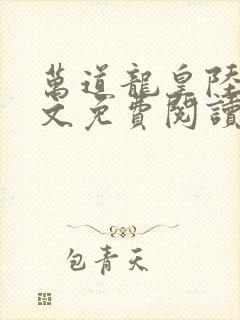 萬道龍皇陸
文免費閱讀
包青天